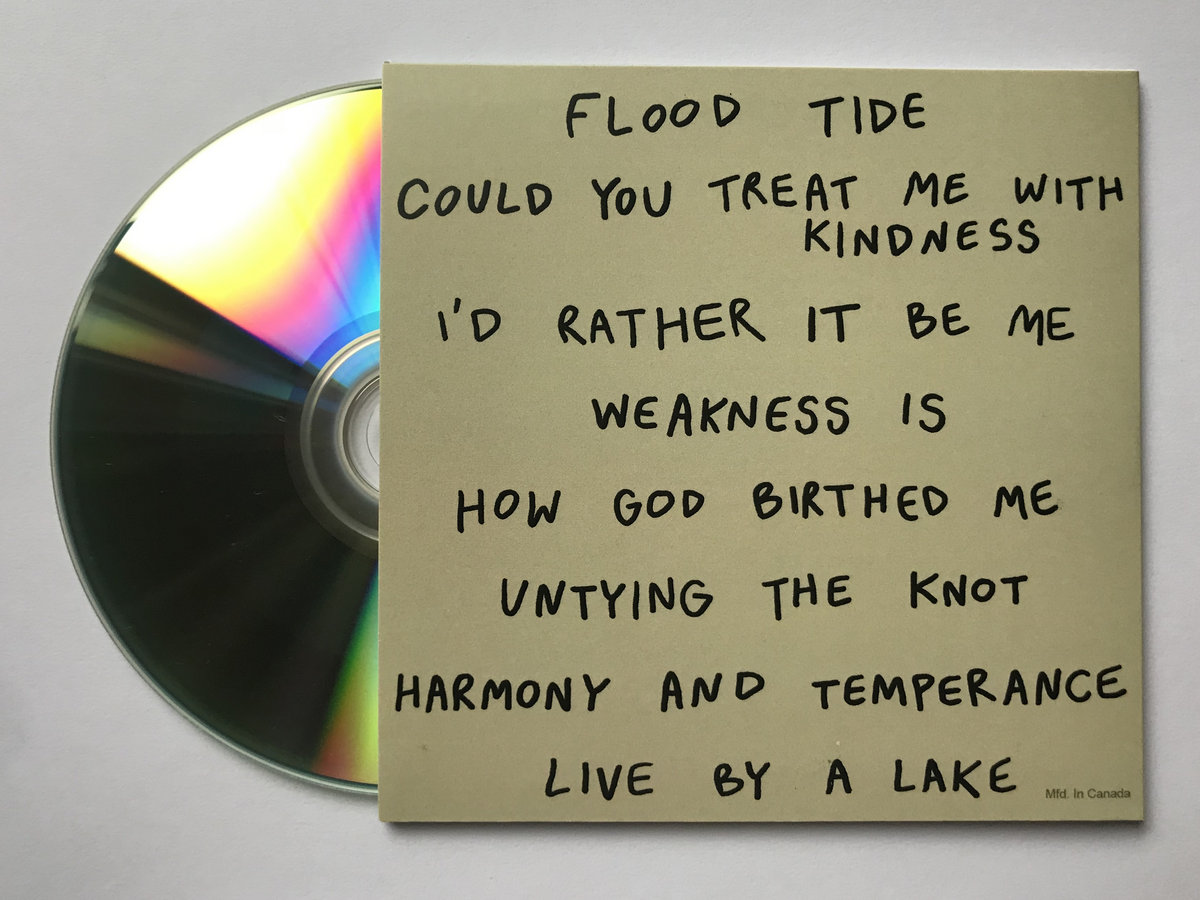 FLOOD TIDE
COULD YOU TREAT ME WITH
KINDNESS
I'D RATHER IT BE ME
WEAKNESS IS
HOW GOD BIRTHED ME
UNTYING THE KNOT
HARMONY AND TEMPERANCE
LIVE BY A LAKE
Mfd. In Canada